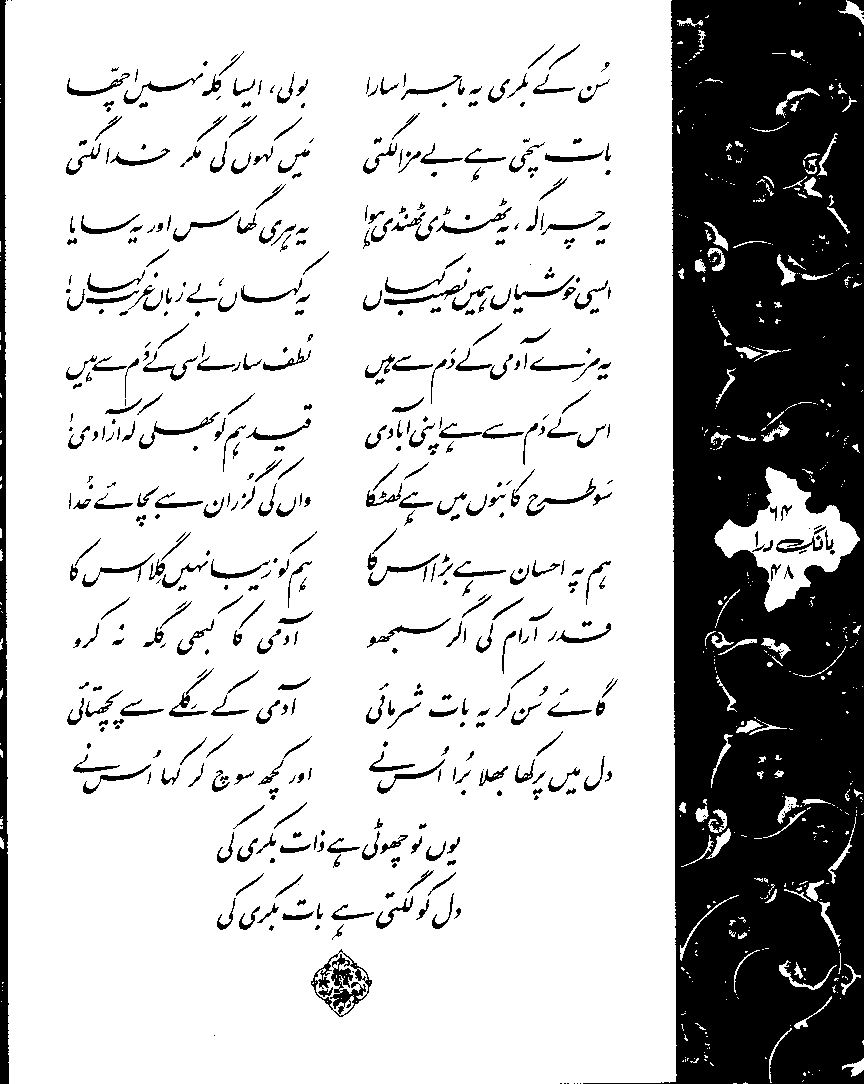 سُن کے بکری یہ ماجرا سارا    بولی، ایسا گِلہ نہیں اچھّا
بات سچّی ہے بے مزا لگتی    مَیں کہوں گی مگر خدا لگتی
یہ چراگہ، یہ ٹھنڈی ٹھنڈی ہوا    یہ ہری گھاس اور یہ سایا
ایسی خوشیاں ہمیں نصیب کہاں    یہ کہاں، بے زباں غریب کہاں!
یہ مزے آدمی کے دَم سے ہیں    لُطف سارے اسی کے دَم سے ہیں
اس کے دَم سے ہے اپنی آبادی    قید ہم کو بھلی کہ آزادی!
سَو طرح کا بَنوں میں ہے کھٹکا    واں کی گُزران سے بچائے خُدا
ہم پہ احسان ہے بڑا اس کا    ہم کو زیبا نہیں گِلا اس کا
قدر آرام کی اگر سمجھو    آدمی کا کبھی گِلہ نہ کرو
گائے سُن کر یہ بات شرمائی    آدمی کے گِلے سے پچھتائی
دل میں پرکھا بھلا بُرا اُس نے    اور کچھ سوچ کر کہا اُس نے
یوں تو چھوٹی ہے ذات بکری کی
دل کو لگتی ہے بات بکری کی
۶۴
بانگِ درا
۴۸